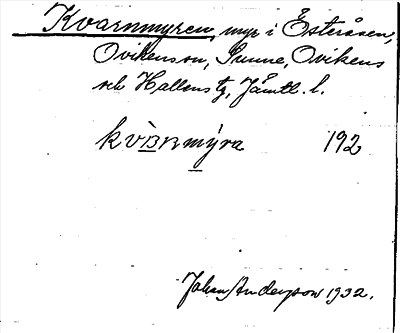 Kvarnmyren, myr i Österåsen,
Ovikenson, Sunne, Ovikens
och Hallens tg, Jämtl. l.
kvànmýra 192
Johan Anderson 1932.